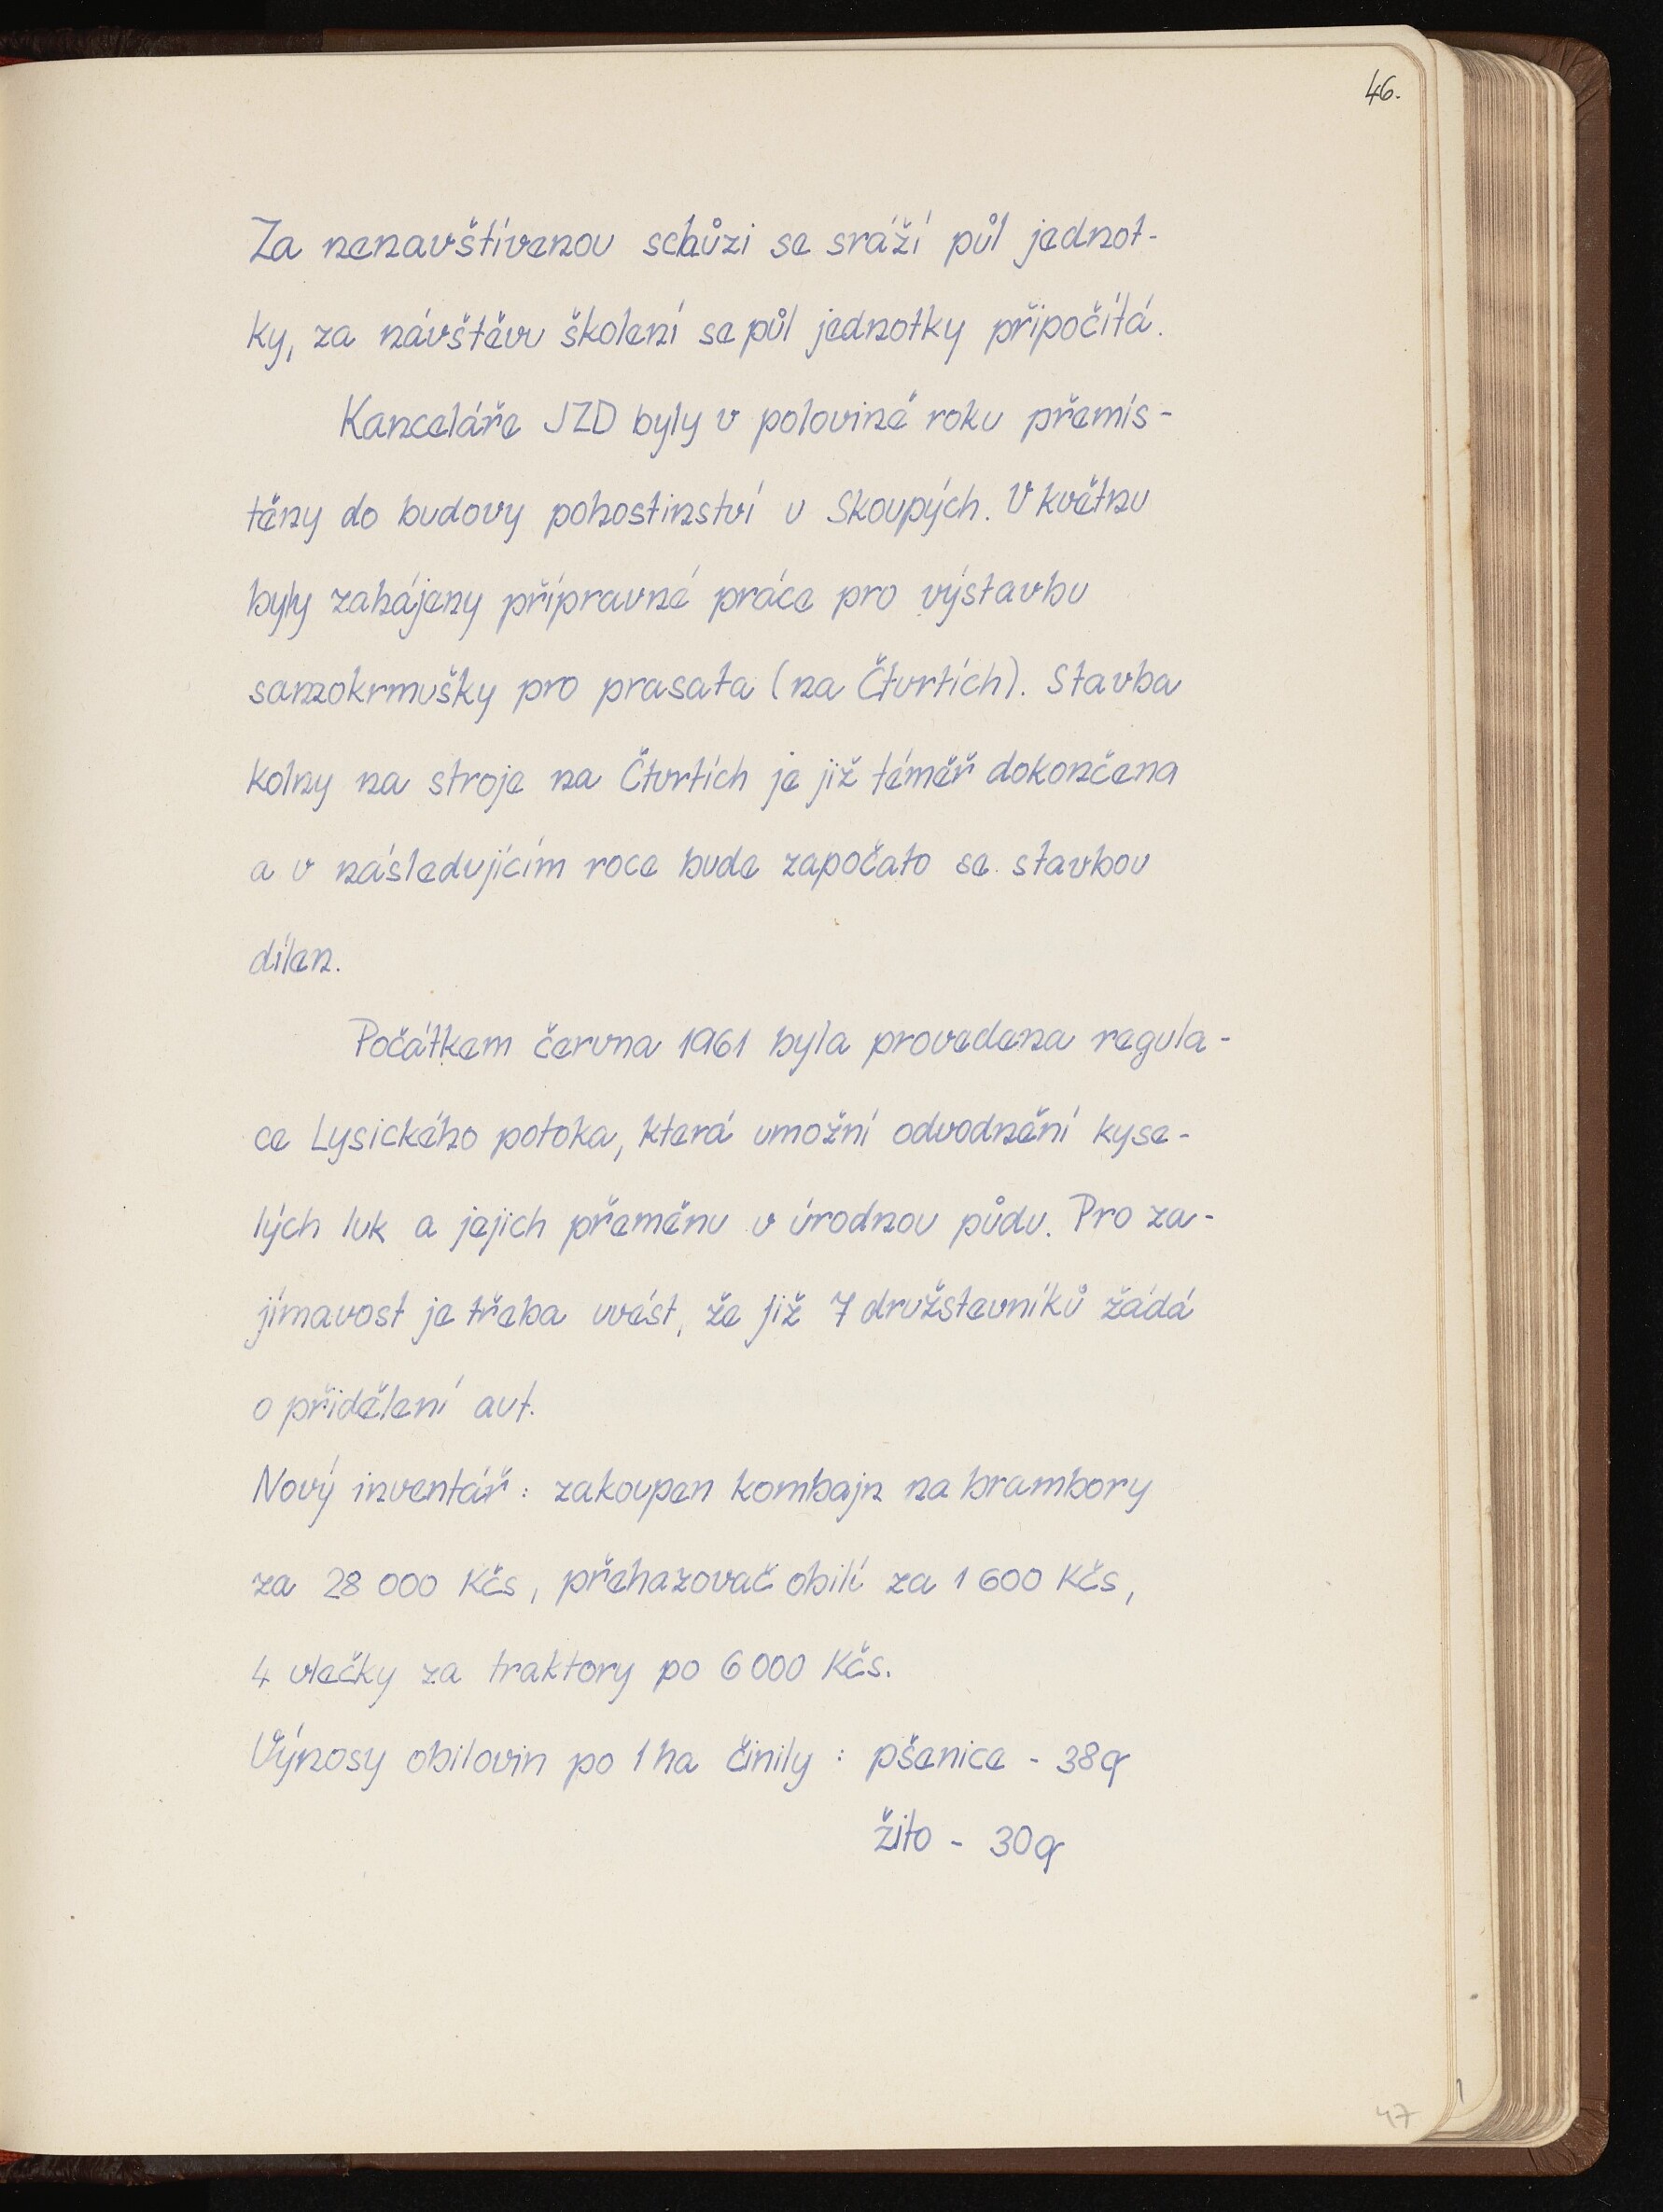 46.
Za nenavštívenou schůzi se sráží půl jednot-
ky, za návštěvu školení se půl jednotky připočítá.
Kanceláře JZD byly v polovině roku přemís-
těny do budovy pohostinství v Skoupých. V květnu
byly zahájeny přípravné práce pro výstavbu
samokrmušky pro prasata (na Čtvrtích). Stavba
kolny na stroje na Čtvrtích je již téměř dokončena
a v následujícím roce bude započato se stavbou
dílen.
Počátkem června 1961 byla provedena regula-
ce Lysického potoka, která umožní odvodnění kyse-
lých luk a jejich přeměnu v úrodnou půdu. Pro za-
jímavost je třeba uvést, že již 7 družstevníků žádá
o přidělení aut.
Nový inventář: zakoupen kombajn na brambory
za 28 000 Kčs, přehazovač obilí za 1 600 Kčs,
4 vlečky za traktory po 6 000 Kčs.
Výnosy obilovin po 1 ha činily: pšenice - 38 q
žito - 30 q
47